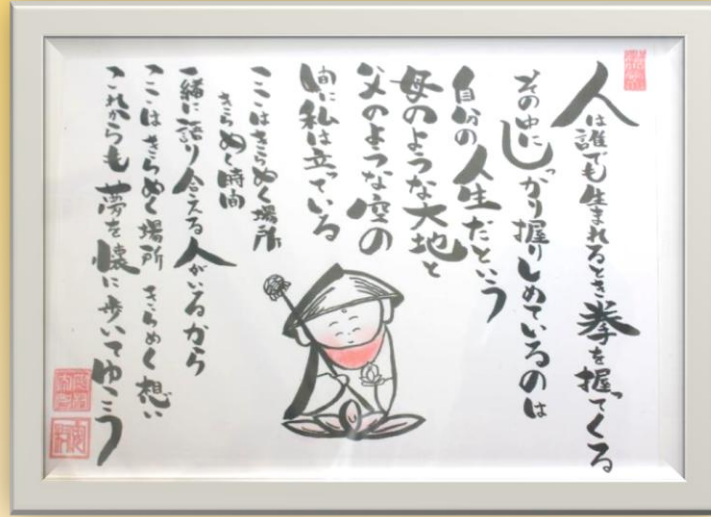 人は誰でも生まれるとき拳を握ってくる
その中にしっかり握りしめているのは
自分の人生だという
母のような大地と
父のような空の
間に私は立っている
ここはきらめく場所
きらめく時間
一緒に語り合える人がいるから
ここはきらめく場所 きらめく想い
これからも夢を懐に歩いてゆこう